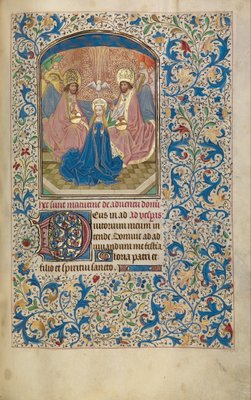 Hec sunt mutationes de adventu domi
Deus in ad ad vesperas
iutorium meum in
tende. Domine ad ad
iuvandum me festina
Gloria patri et
filio et spiritui sancto.